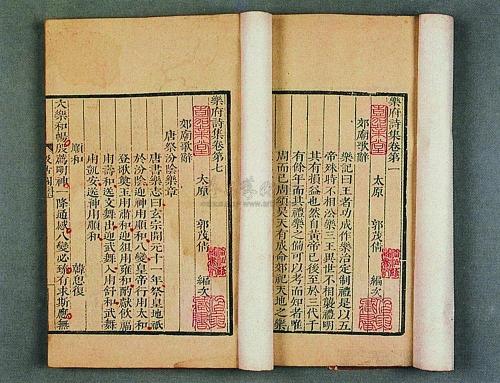 樂府詩集卷第一
太原 郭茂倩 編次
郊廟歌辭
樂記曰王者功成作樂治定制禮是以五
帝殊時不相沿樂三王異世不相襲禮明
其有損益也然自黃帝已後至於三代千
有餘年而其禮樂之備可以考而知者唯
周而已周頌昊天有成命郊祀天地之樂
樂府詩集卷第七
太原 郭茂倩 編次
郊廟歌辭
唐祭汾陰樂章
唐書樂志曰玄宗開元十一年祭皇地祇
於汾陰迎神用順和八變皇帝行用太和
登歌奠玉用肅和迎俎用雍和酌獻飲福
用壽和送文舞出迎武舞入用舒和武舞
用凱安送神用順和
順和 韓思復
大樂和暢殷薦明神一降通感八變必臻有求斯應無